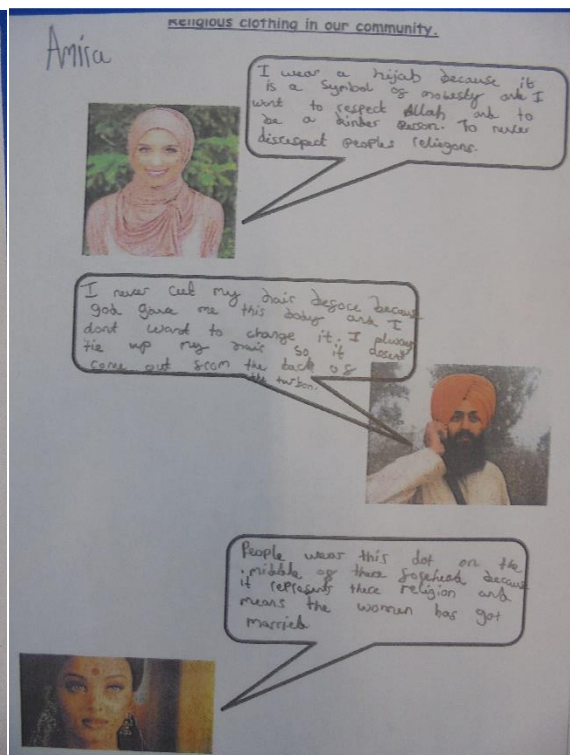 Religious clothing in our community.
Amira
I wear a hijab because it
is a symbol of modesty and I
want to respect Allah and to
be a kinder person. To never
disrespect peoples religons.
I never cut my hair before because
god gave me this body and I
dont want to change it. I always
tie up my hair so it doesent
come out from the back of
the turban.
People wear this dot on the
middle of there forehead because
it represents there religion and
means the women has got
married